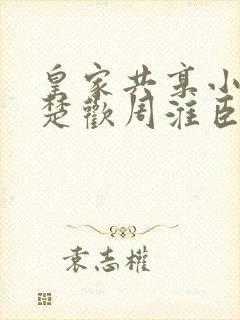 皇家共享小
楚歡周淮臣
袁志權